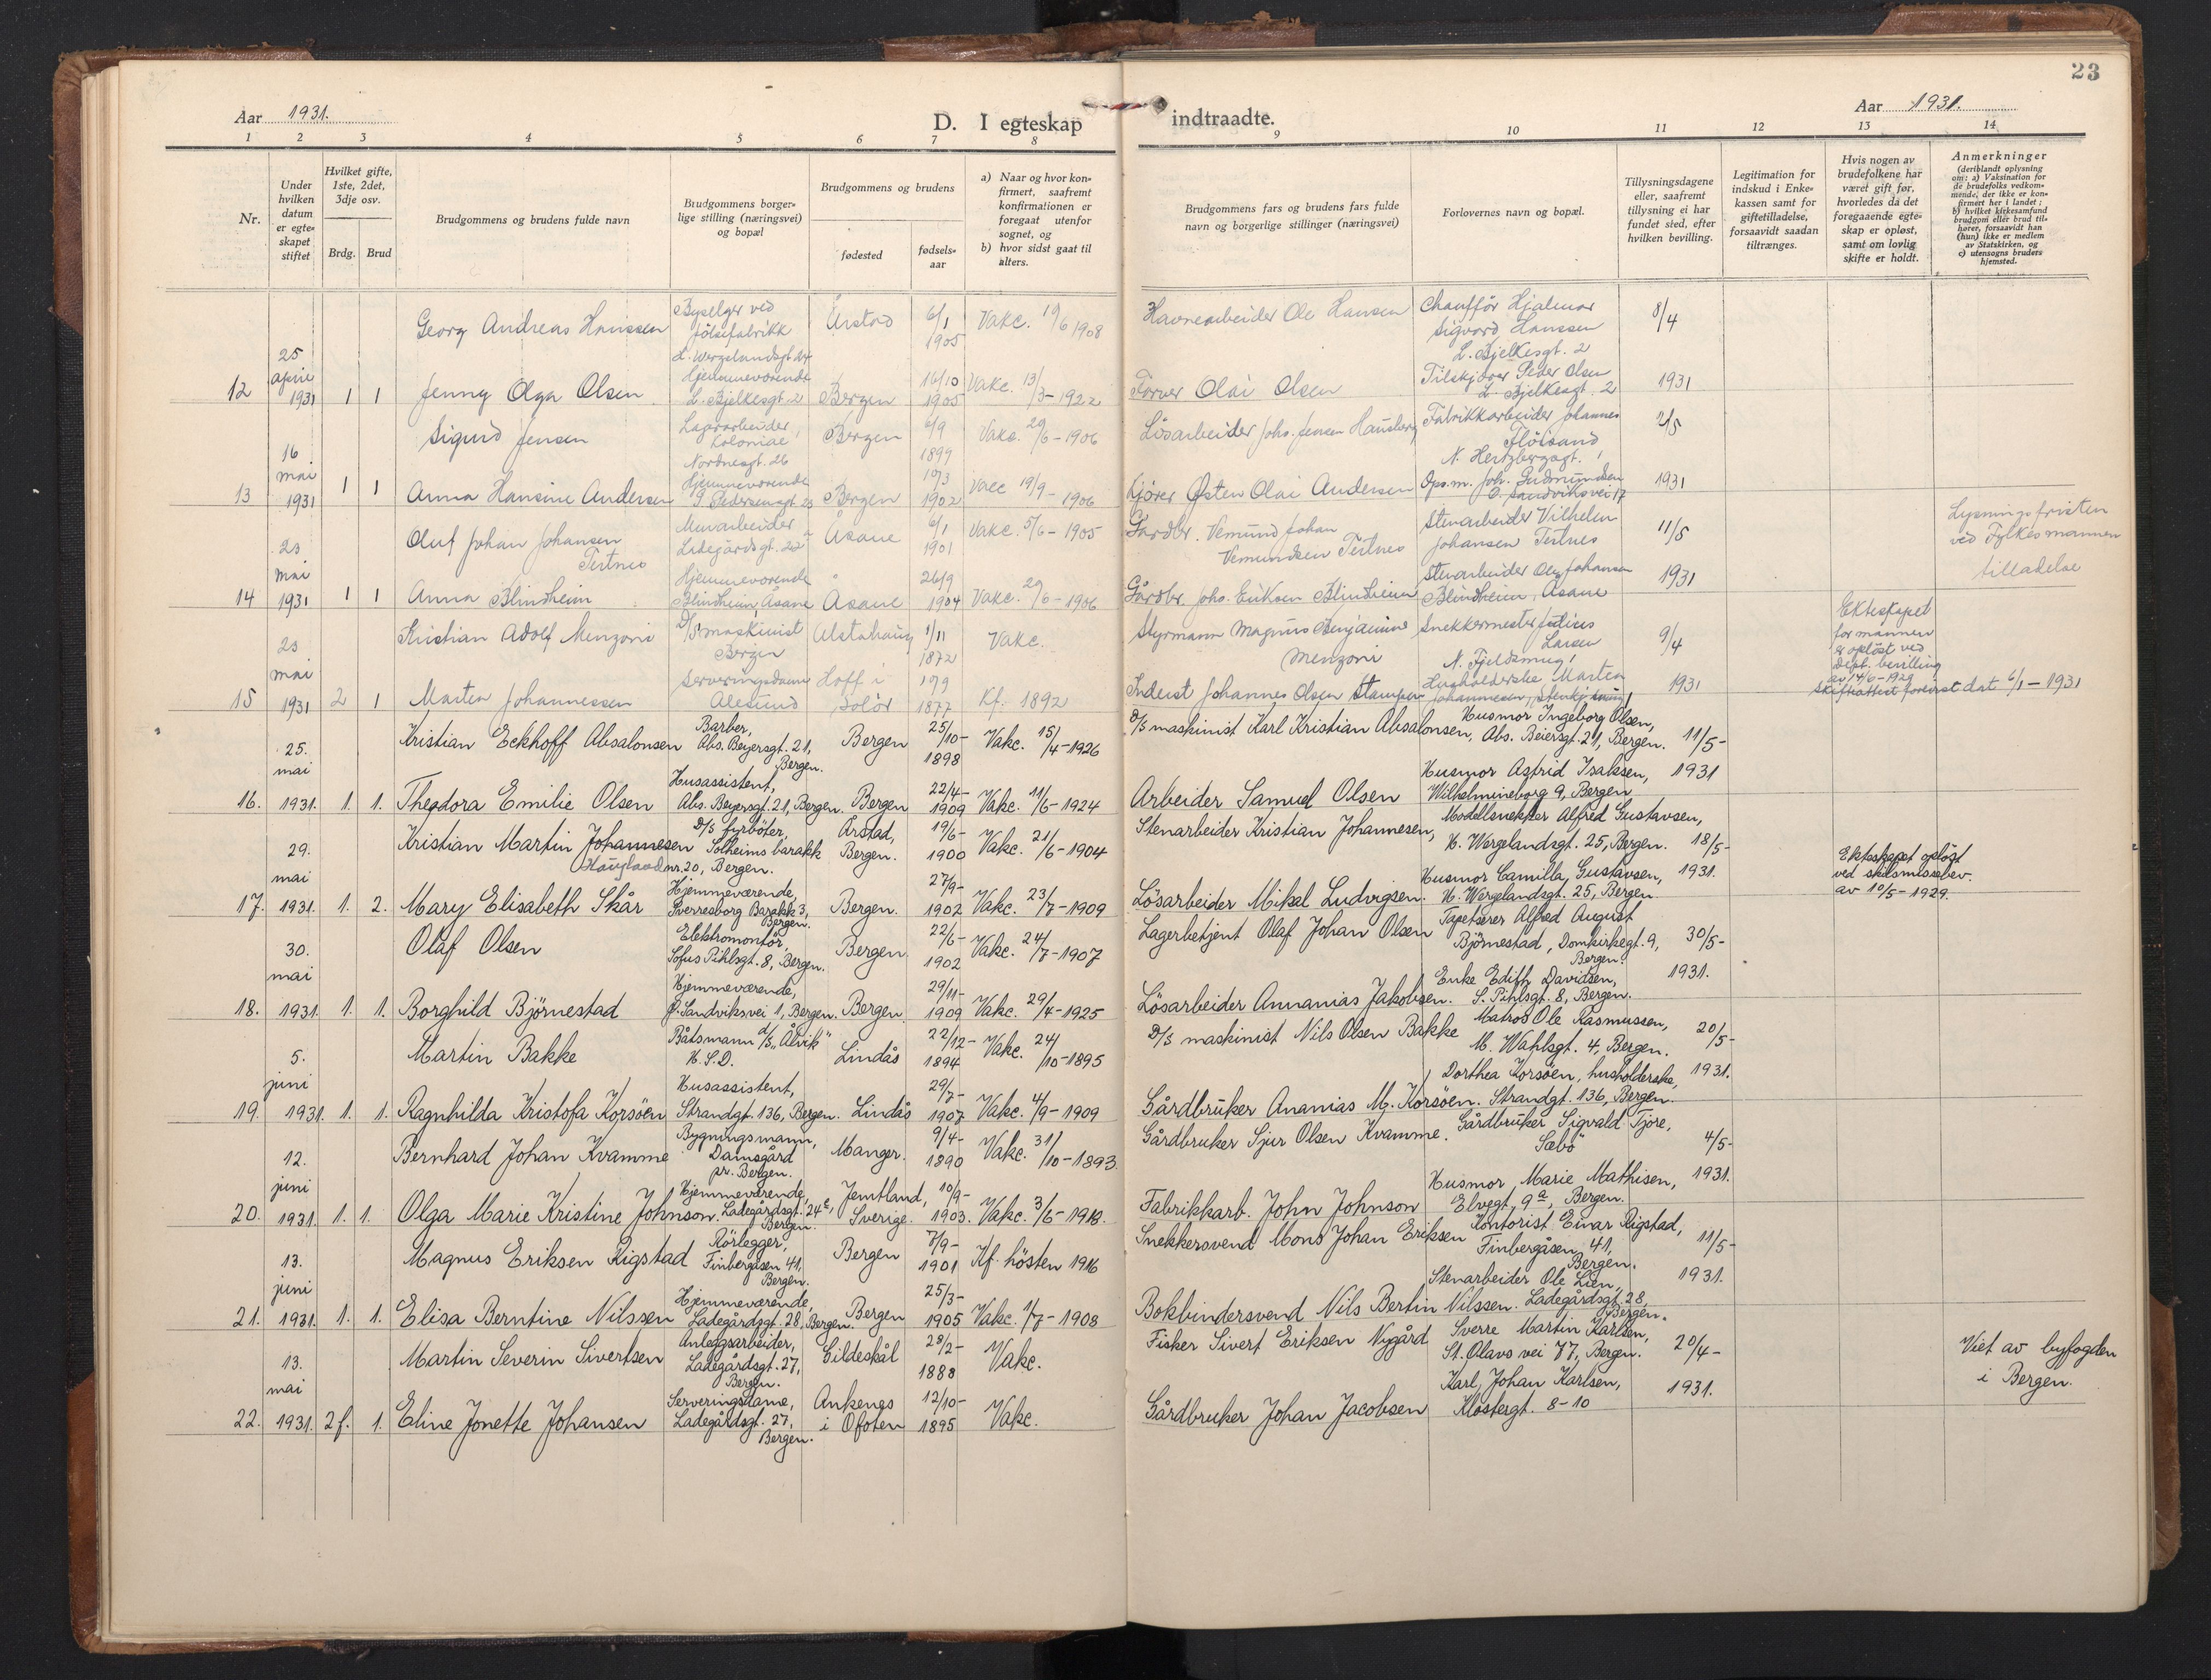 23
Aar 1931.
D. I egteskap
indtraadte.
Aar 1931.
1 2 3 4 5 6 7 8
9 10 11 12 13 14
Nr.
Under hvilken datum er egteskapet stiftet
Hvilket gifte, 1ste, 2det, 3dje osv.
Brdg. Brud
Brudgommens og brudens fulde navn
Brudgommens borgerlige stilling (næringsvei) og bopæl
Brudgommens og brudens
fødested
fødselsaar
a) Naar og hvor konfirmert, saafremt konfirmationen er foregaat utenfor sognet, og
b) hvor sidst gaat til alters.
Brudgommens fars og brudens fars fulde navn og borgerlige stillinger (næringsvei)
Forlovernes navn og bopæl.
Tillysningsdagene eller, saafremt tillysning ei har fundet sted, efter hvilken bevilling.
Legitimation for indskud i Enkekassen samt for giftetilladelse, forsaavidt saadan tiltrænges.
Hvis nogen av brudefolkene har været gift før, hvorledes da det foregaaende egteskap er opløst, samt om lovlig skifte er holdt.
Anmerkninger
(deriblandt oplysning om: a) Vaksination for de brudefolks vedkommende, der ikke er konfirmert her i landet; b) hvilket kirkesamfund brudgom eller brud tilhører, forsaavidt han (hun) ikke er medlem av Statskirken, og c) utensogns bruders hjemsted.
Georg Andreas Hanssen
fölsefabrikk
Årstad 6/1 1905 Vakc. 19/6 1908
Havnearbeider Ole Hansen
Chaufför Hjalmar Sigvard Hanssen
L. Bjelkesgt. 2
8/4
12 25 april 1931 1 1 Jenny Olga Olsen
Hjemmeværende L. Bjelkesgt. 2
Bergen 16/10 1905 Vakc. 13/3-1922
Farver Olai Olsen
Peder Olsen L. Bjelkesgt. 2
1931
Sigurd Jensen
Lagerarbeider, Nordnesgt. 26
Bergen 6/9 1899 Vakc. 29/6-1906
Lösarbeider Johs. Jensen Hausberg
Fabrikkarbeider Johannes Flöisand
N. Hertzbergsgt. 1
2/5
13 16 mai 1931 1 1 Anna Hansine Andersen
Hjemmeværende
Bergen 10/3 1902 Vacc 19/9-1906
Kjörer Østen Olai Andersen
Ops.m. Joh. Gudmundsen
Sandviksvei 17
1931
Oluf Johan Johansen Tertnes
Murarbeider Ladegårdsgt. 22
Åsane 6/1 1901 Vakc. 5/6-1905
Gardbr. Vemund Johan Vemundsen Tertnes
Stenarbeider Vilhelm Johansen Tertnes
11/5
Lysningsfristen ved Fylkesmannen tilladelse
14 23 mai 1931 1 1 Anna Blindheim
Hjemmeværende Blindheim Åsane
Åsane 26/9 1904 Vakc. 29/6-1906
Gårdbr. Johs. Eriksen Blindheim
Stenarbeider Olai Johansen Blindheim, Åsane
1931
Kristian Adolf Menzoni
D/S maskinist Bergen
Alstahaug 1/11 1872 Vakc.
Styrmann Magnus Benjamin Menzoni
Snekkermester Larsen
N. Fjeldsmug 1
9/4
Ekteskapet for mannen er oplöst ved dept. bevilling av 14/6-1929
Skifteattest forevist dat 6/1-1931
15 23 mai 1931 2 1 Marten Johannessen
Serveringsdame Ålesund
Hoff i Solör 10/9 1877 Kf. 1892
Inderst Johannes Olsen Stampen
Husholderske Marten Johannesen,
1931
Kristian Eckhoff Absalonsen
Barber, Abs. Beyersgt. 21, Bergen.
Bergen 25/10-1898 Vakc. 15/4-1926
D/S maskinist Karl Kristian Absalonsen, Abs. Beiersgt. 21, Bergen.
Husmor Ingeborg Olsen,
11/5-
16. 25. mai 1931. 1. 1. Theodora Emilie Olsen
Husassistent, Abs. Beyersgt. 21, Bergen.
Bergen 22/4-1909 Vakc. 11/6-1924
Arbeider Samuel Olsen
Husmor Astrid Isaksen, Wilhelmineborg 9, Bergen
1931
Kristian Martin Johannesen Haugland
D/S fyrböter, Solheims barakk nr. 20, Bergen.
Årstad, Bergen. 19/6-1900 Vakc. 21/6-1904
Stenarbeider Kristian Johannesen,
Modellsnekker Alfred Gustavsen, H. Wergelandsgt. 25, Bergen.
18/5-
Ekteskapet oplöst ved skilsmissebev. av 10/5-1929.
17. 29. mai 1931. 1. 2. Mary Elisabeth Skår
Hjemmeværende, Sverresborg Barakk 3, Bergen.
Bergen. 27/9-1902 Vakc. 23/7-1909
Lösarbeider Mikal Ludvigsen.
Husmor Camilla Gustavsen, H. Wergelandsgt. 25, Bergen
1931.
Olaf Olsen
Elektromontör, Sofus Pihlsgt. 8, Bergen.
Bergen. 22/6-1902 Vakc. 24/7-1907
Lagerbetjent Olaf Johan Olsen
Tapetserer Alfred August Björnestad, Domkirkegt. 9, Bergen.
30/5-
18. 30. mai 1931. 1. 1. Borghild Björnestad
Hjemmeværende, Sandviksvei 1, Bergen.
Bergen. 29/11-1909 Vakc. 29/4-1925
Lösarbeider Annanias Jakobsen.
Enke Edith Davidsen, S. Pihlsgt. 8, Bergen.
1931.
Martin Bakke
Båtsmann d/s „Ålvik" H.S.D.
Lindås 22/12-1894 Vakc. 24/10-1895
D/S maskinist Nils Olsen Bakke
Matros Ole Rasmussen, M. Wahlsgt. 4, Bergen.
20/5-
19. 5. juni 1931. 1. 1. Ragnhilda Kristofa Korsöen
Husassistent, Strandgt. 136, Bergen.
Lindås 29/7-1907 Vakc. 4/9-1909
Gårdbruker Ananias M. Korsöen.
Dorthea Korsöen, husholderske, Strandgt. 136, Bergen.
1931.
Bernhard Johan Kvamme
Bygningsmann, Damsgård pr. Bergen.
Manger. 9/4-1890 Vakc. 31/10-1893.
Gårdbruker Sjur Olsen Kvamme.
Gårdbruker Sigvald Tjore, Sæbö
4/5-
20. 12. juni 1931. 1. 1. Olga Marie Kristine Johnson.
Hjemmeværende, Ladegårdsgt. 24c, Bergen.
Jemtland, Sverige. 10/9-1903. Vakc. 3/6-1918.
Fabrikkarb. John Johnson
Husmor Marie Mathisen, Elvegt. 9a, Bergen.
1931.
Magnus Eriksen Rigstad
Rörlegger, Finbergåsen 41, Bergen.
Bergen 7/9-1901 Kf. hösten 1916
Snekkersvend Mons Johan Eriksen
Kontorist Einar Rigstad, Finbergåsen 41, Bergen.
11/5-
21. 13. juni 1931. 1. 1. Elisa Berntine Nilssen
Hjemmeværende, Ladegårdsgt. 28, Bergen.
Bergen 25/3-1905 Vakc. 1/7-1908
Bokbindersvend Nils Bertin Nilssen.
Stenarbeider Ole Lien, Ladegårdsgt 28, Bergen.
1931.
Martin Severin Sivertsen
Anleggsarbeider, Ladegårdsgt. 27, Bergen.
Gildeskål 28/2-1888 Vakc.
Fisker Sivert Eriksen Nygård
Sverre Martin Karlsen, St. Olavs vei 77, Bergen.
20/4-
Viet av byfogden i Bergen.
22. 13. mai 1931. 2f. 1. Eline Jonette Johansen
Serveringsdame, Ladegårdsgt. 27, Bergen.
Ankenes i Ofoten 12/10-1895 Vakc.
Gårdbruker Johan Jacobsen
Karl Johan Karlsen, Klostergt. 8-10
1931.